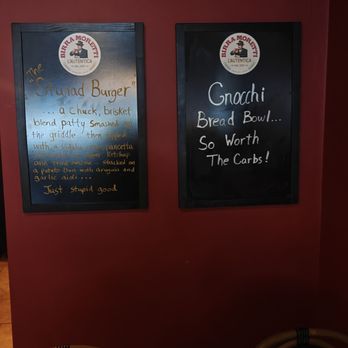 BIRRA MORETTI
L'AUTENTICA
The
"Grumad Burger"
... a chuck, brisket
blend patty smashed on
the griddle then topped
with a pancetta
Ketchup
and stacked on
a potato bun with arugula and
garlic aioli...
Just stupid good
BIRRA MORETTI
L'AUTENTICA
Gnocchi
Bread Bowl...
So Worth
The Carbs!